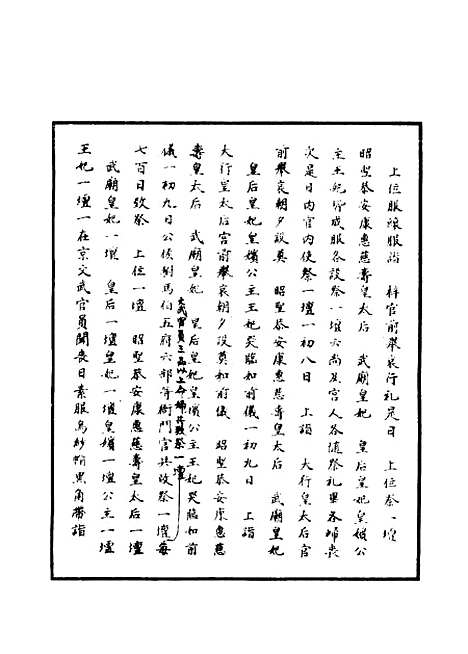 上位服縗服詣　梓宮前舉哀行礼是日　上位祭一壇
昭聖恭安康惠慈壽皇太后　武廟皇妃　皇后皇妃皇嬪公
主王妃皆成服各設祭一壇六尚及宮人各隨祭礼畢各歸喪
次是日内官内使祭一壇一初八日　上詣　大行皇太后宮
前舉哀朝夕設奠　昭聖恭安康惠慈壽皇太后　武廟皇妃
皇后皇妃皇嬪公主王妃哭臨如前儀一初九日　上詣
大行皇太后宮前舉哀朝夕設奠如前儀　昭聖恭安康惠慈
壽皇太后　武廟皇妃　皇后皇妃皇嬪公主王妃哭臨如前
儀一初九日公侯駙馬伯五府六部等衙門官共致祭一壇每
文武官員三品以上命婦共致祭一壇
七百日致祭　上位一壇　昭聖恭安康惠慈壽皇太后一壇
武廟皇妃一壇　皇后一壇皇妃一壇皇嬪一壇公主一壇
王妃一壇一在京文武官員聞喪日素服烏紗帽黑角帶詣